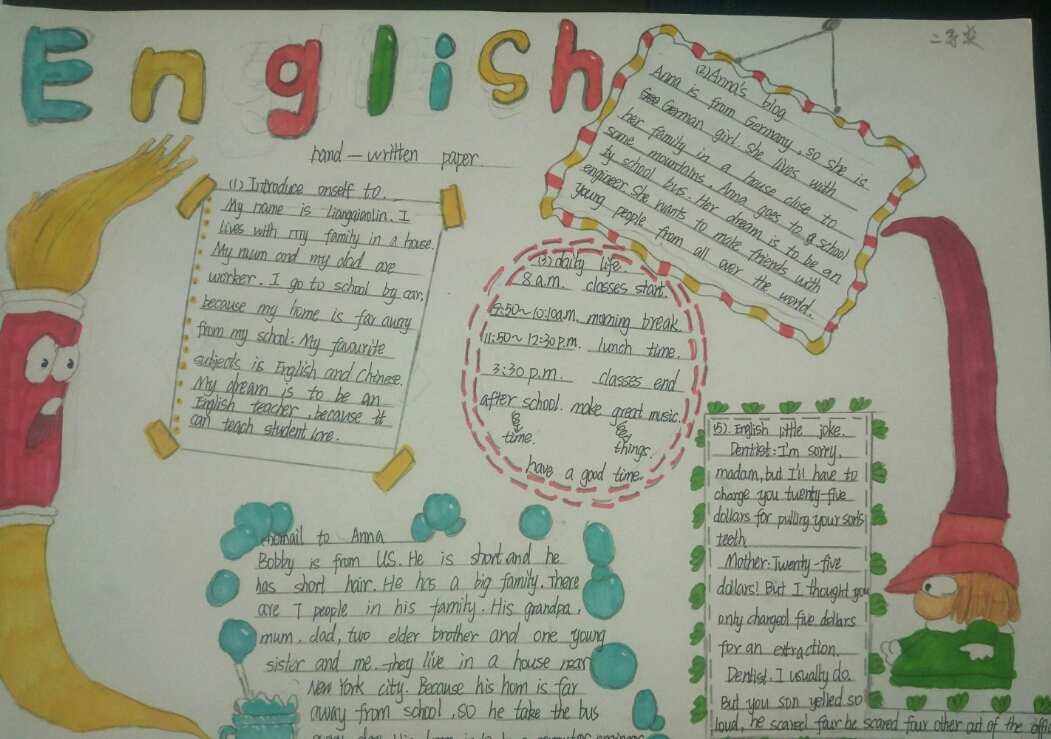 English
hand-written paper
(1) Introduce onself to.
My name is Liangqiaolin. I
lives with my family in a house.
My mum and my dad are
worker. I go to school by car,
because my home is far away
from my school. My favourite
subjects is English and Chinese.
My dream is to be an
English teacher, because it
can teach student lore.
(2) Anna's blog
Anna is from Germany, so she is
German girl she lives with
her family in a house close to
some mountains. Anna goes to g school
ty school bus. Her dream is to be an
engineer. She wants to make friends with
young people from all over the world.
(3) daily life.
8 a.m. classes start.
9:50~10:10a.m. morning break
11:50~12:30 p.m. lunch time.
3:30 p.m. classes end
after school. make great music.
time. things.
have a good time.
email to Anna
Bobby is from US. He is short and he
has short hair. He has a big family. There
are 7 people in his family. His grandpa,
mum, dad, two elder brother and one young
sister and me. they live in a house near
New York city. Because his hom is far
away from school, so he take the bus
(5) English little joke.
Dentist: I'm sorry,
madam, but I'll have to
charge you twenty-five
dollars for pulling your son's
teeth
Mother: Twenty-five
dollars! But I thought you
only charged five dollars
for an extraction.
Dentist. I usually do.
But you son yelled so
loud, he scared four be scared four other out of the offi